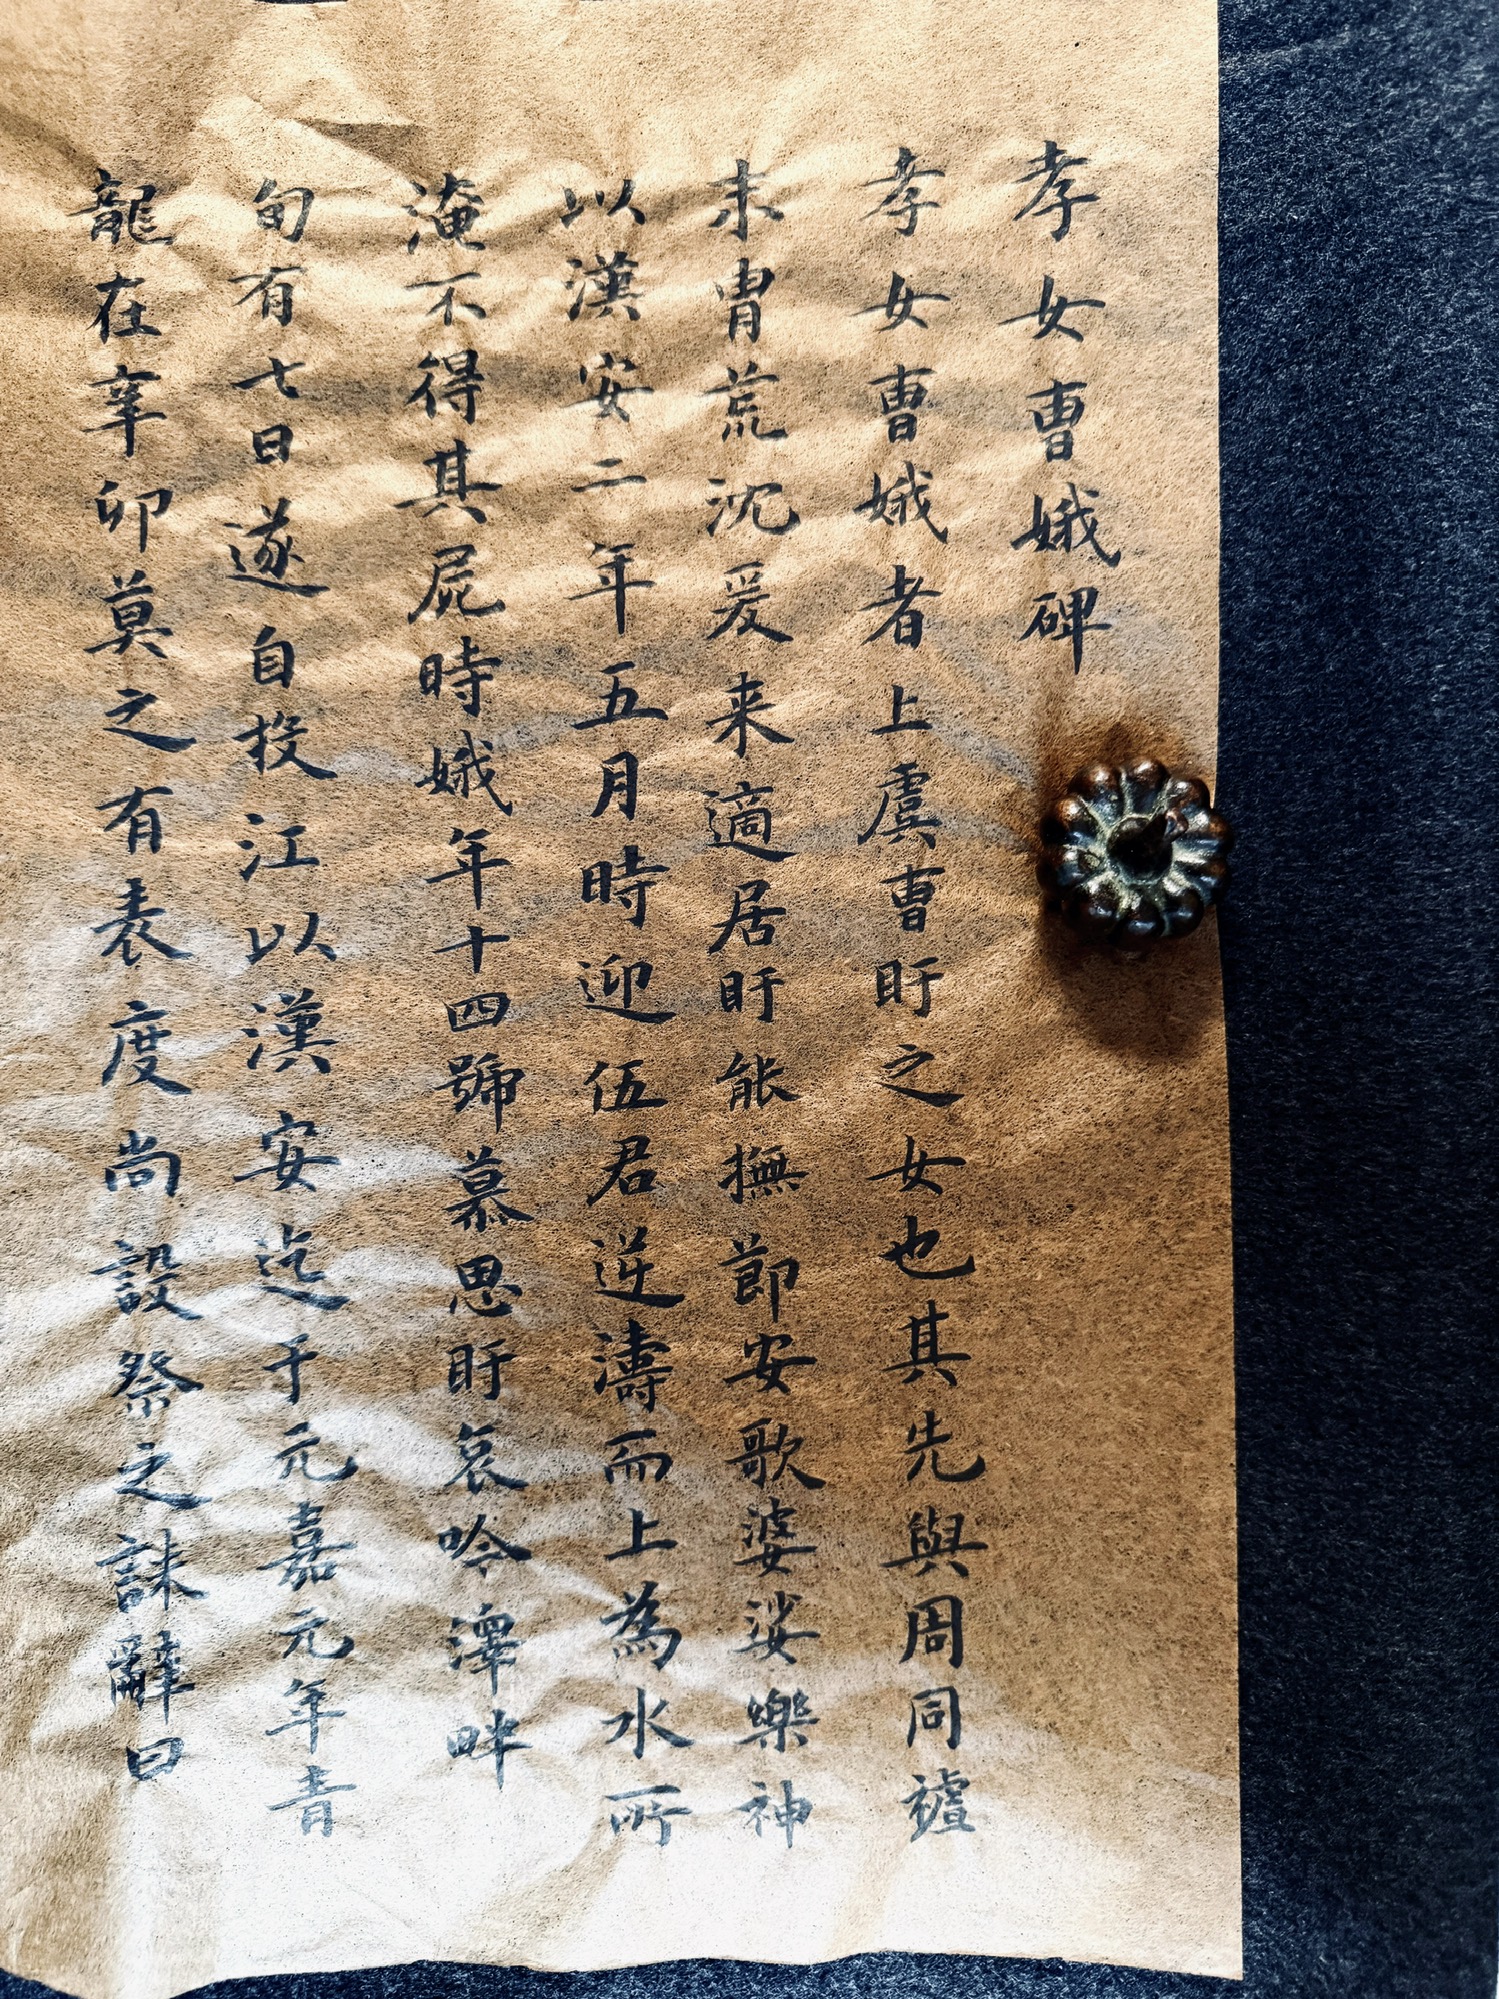 孝女曹娥碑
孝女曹娥者上虞曹盱之女也其先與周同
末胄荒沈爰来適居盱能撫節安歌婆娑樂神
以漢安二年五月時迎伍君逆濤而上為水所
淹不得其屍時娥年十四號慕思盱哀吟澤畔
旬有七日遂自投江以漢安迄于元嘉元年青
龍在辛卯莫之有表度尚設祭之誄辭曰